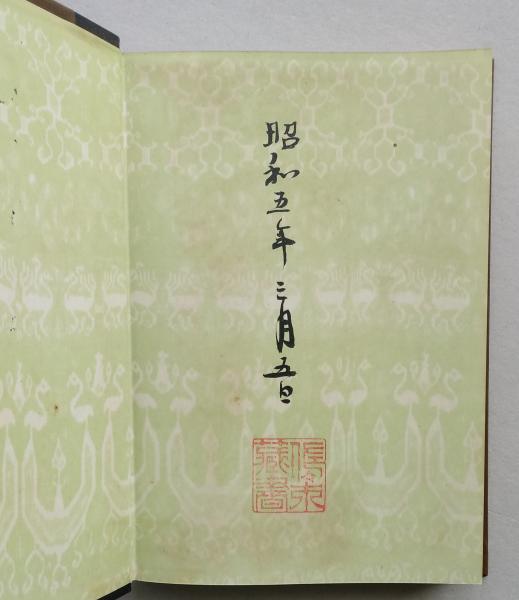 昭和五年三月五日
藏書